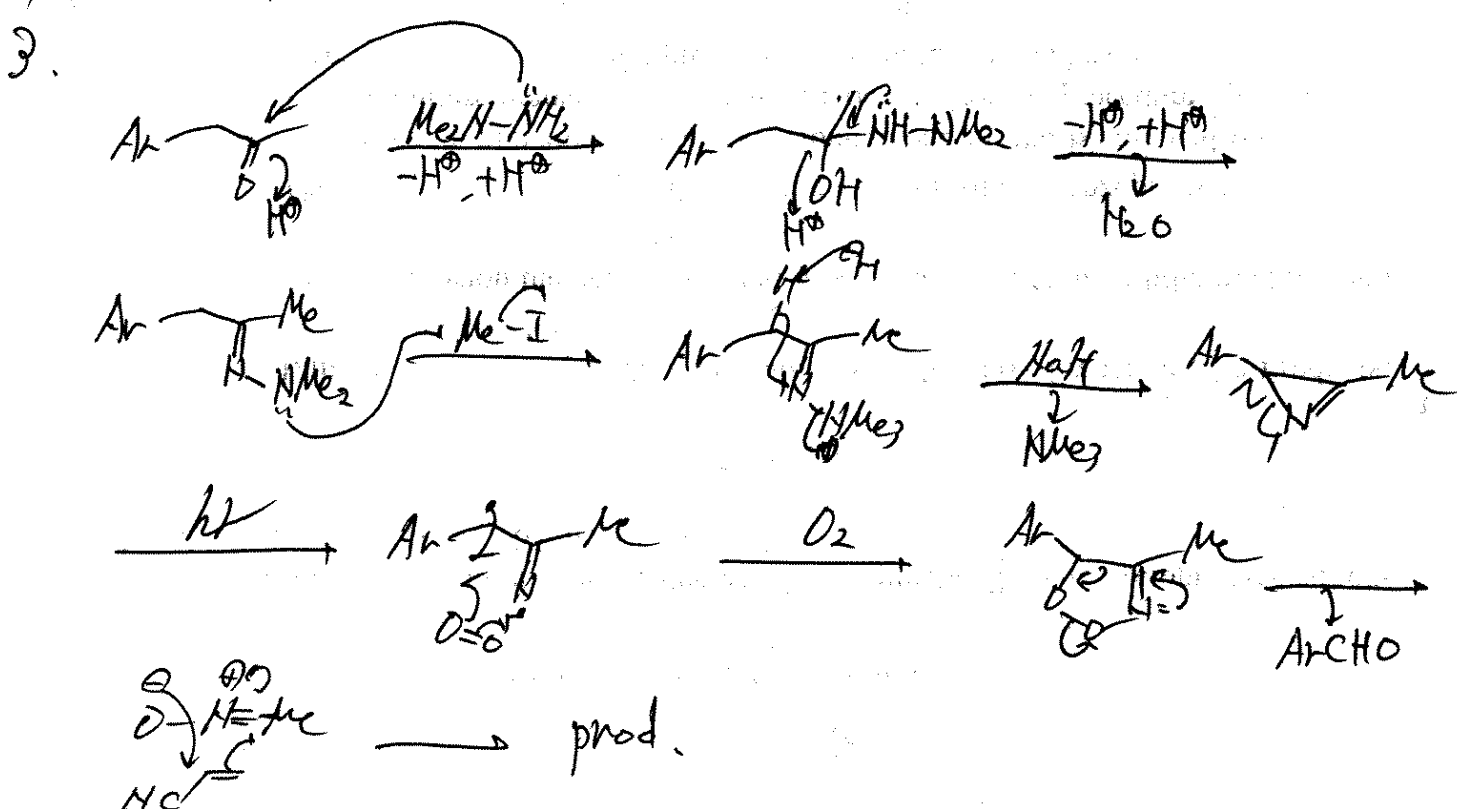 3.
Me2N–N̈H2
Ar
O
H⊕
–H⊕, +H⊕
Ar
N̈H–NMe2
OH
H⊕
–H⊕, +H⊕
H2O
Ar
Me
N–NMe2
Me–I
H
H
Ar
Me
N
NMe3
⊕
NaH
NMe3
Ar
Me
N
hν
Ar
Me
N
O=O
O2
Ar
Me
O
O
N
ArCHO
⊖
⊕
O–N≡Me
NC
prod.